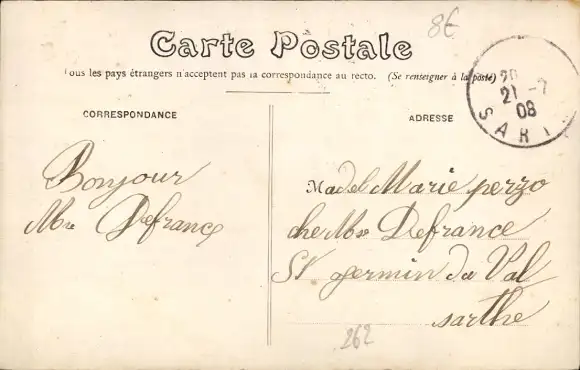 8€
Carte Postale
Tous les pays étrangers n'acceptent pas la correspondance au recto. (Se renseigner à la poste)
20
21 -7
08
SART
CORRESPONDANCE
ADRESSE
Bonjour
Mme Defrance
Madel Marie perzo
che Mme Defrance
St germin du Val
sarthe
262